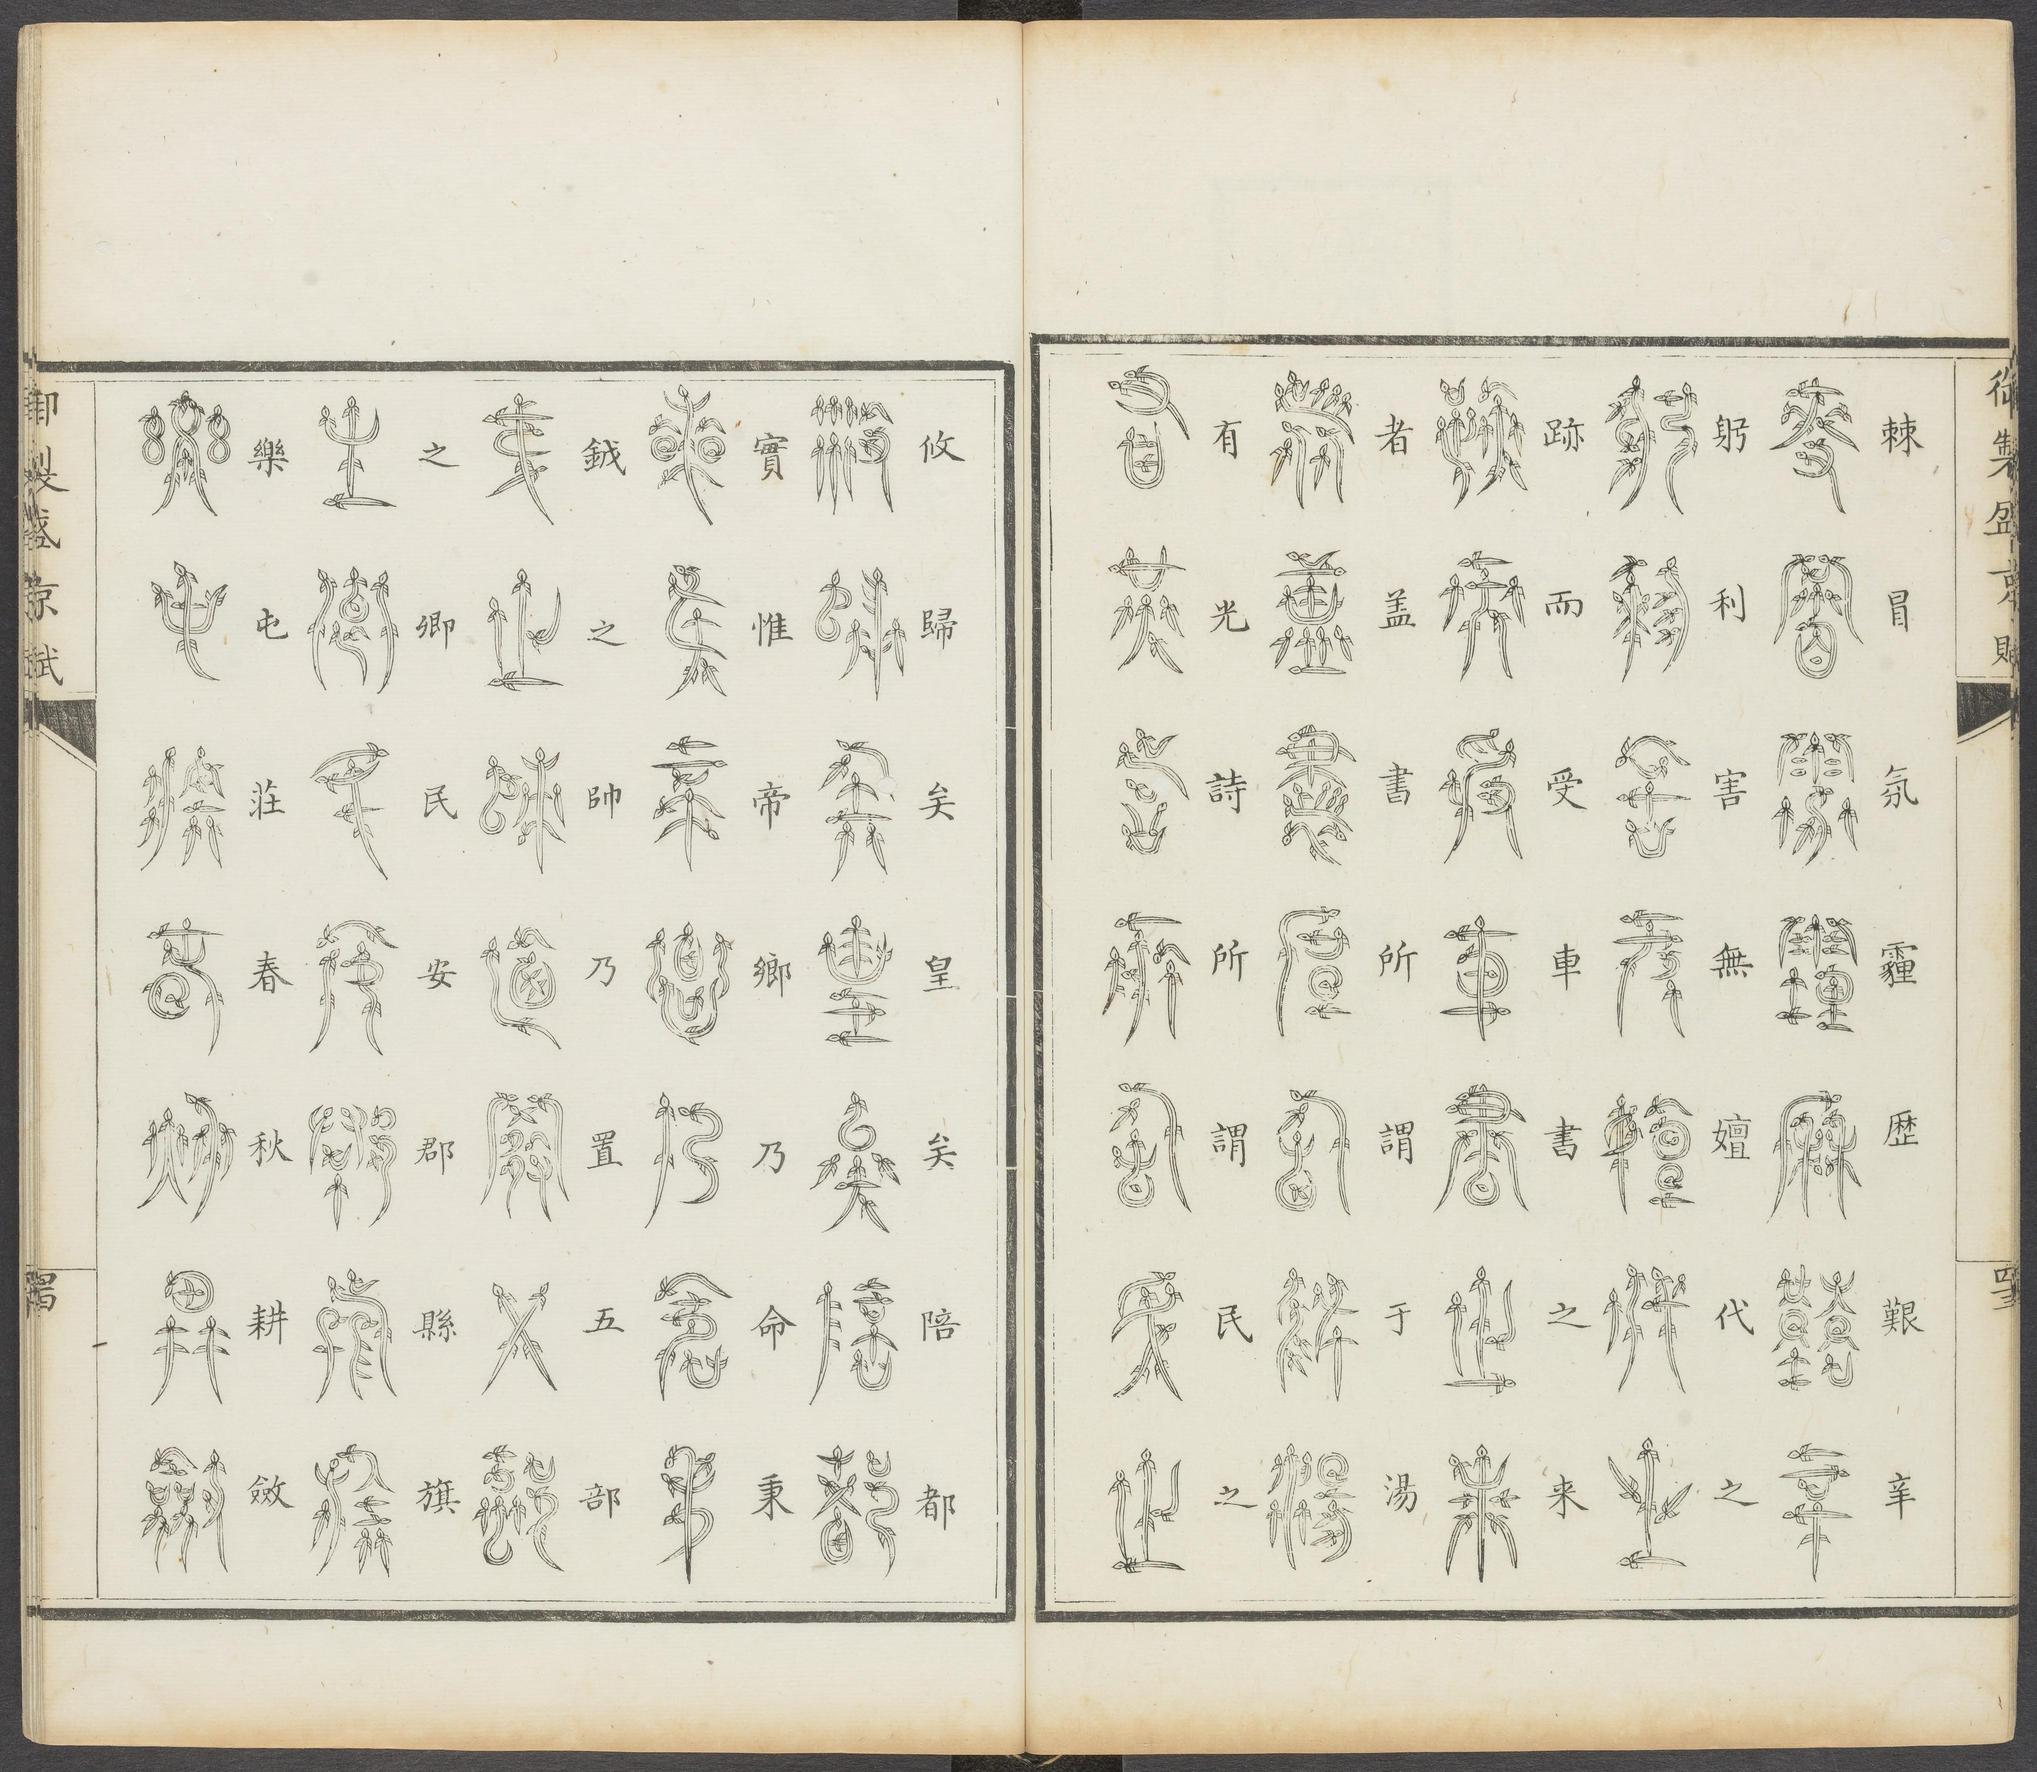 棘冒氛霾歷艱辛
躬利害無嬗代之
跡而受車書之来
者盖書所謂于湯
有光詩所謂民之
攸歸矣皇矣陪都
實惟帝鄉乃命秉
鉞之帥乃置五部
之卿民安郡縣旗
樂屯莊春秋耕斂
御製盛京賦